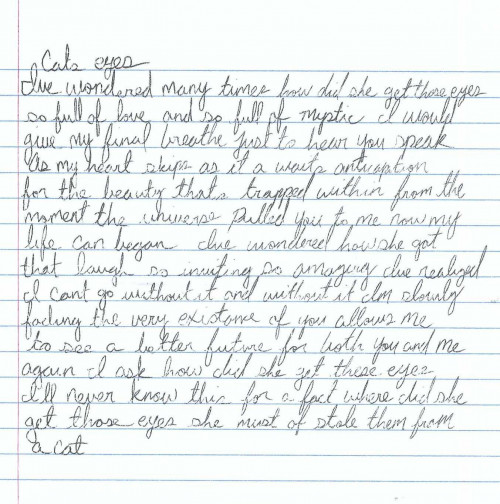 Cats eyes
Ive wondered many times how did she get those eyes
so full of love and so full of mystic I would
give my final breathe just to hear you speak
As my heart skips as it a waits anticvation
for the beauty thats trapped within from the
moment the universe pulled you to me now my
life can began Ive wondered how she got
that laugh so inviting so amazing Ive realized
I cant go without it and without it Im slowly
fading the very existane of you allows me
to see a better future for both you and me
again I ask how did she get these eyes
I'll never know this for a fact where did she
get those eyes she must of stole them from
a cat